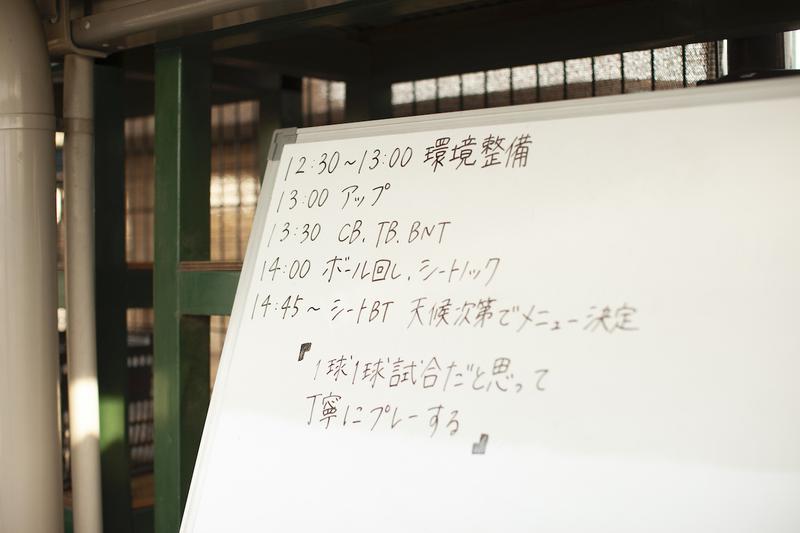 12:30~13:00 環境整備
13:00 アップ
13:30 CB. TB. BNT
14:00 ボール回し. シートノック
14:45~ シートBT 天候次第でメニュー決定
『1球1球試合だと思って
丁寧にプレーする』